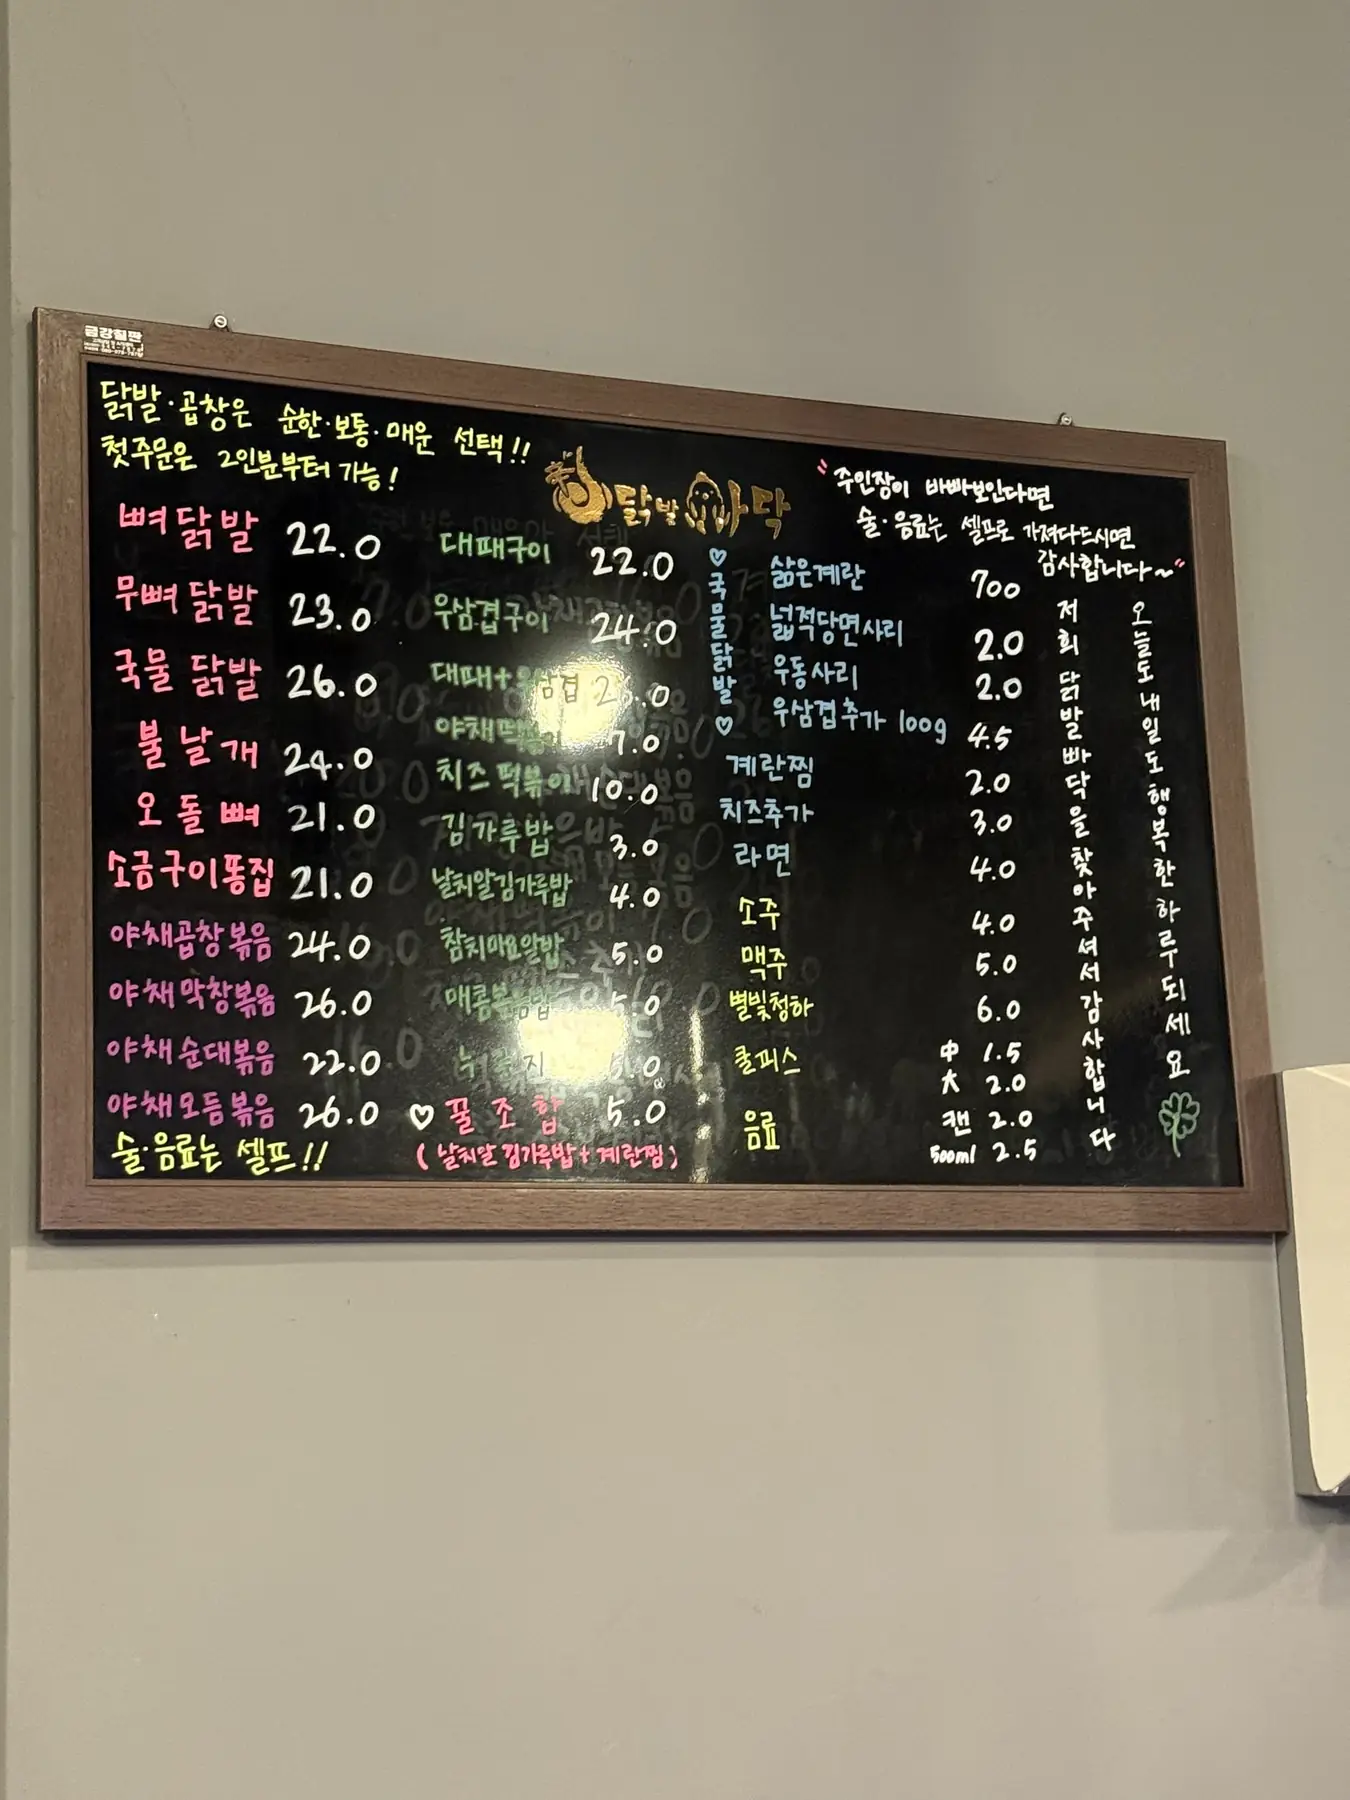 금강칠판
닭발·곱창은 순한·보통·매운 선택!!
첫주문은 2인분부터 가능!
뼈닭발 22.0
무뼈닭발 23.0
국물 닭발 26.0
불날개 24.0
오돌뼈 21.0
소금구이똥집 21.0
야채곱창볶음 24.0
야채막창볶음 26.0
야채순대볶음 22.0
야채모듬볶음 26.0
술·음료는 셀프!!
닭발빠닥
대패구이 22.0
우삼겹구이 24.0
대패+우삼겹
야채떡볶이 7.0
치즈떡볶이 10.0
김가루밥 3.0
날치알김가루밥 4.0
참치마요알밥 5.0
매콤볶음밥 5.0
누룽지
♡ 꿀조합 5.0
(날치알김가루밥+계란찜)
"주인장이 바빠보인다면
술·음료는 셀프로 가져다드시면
감사합니다~"
♡국물닭발♡
삶은계란 700
넓적당면사리 2.0
우동사리 2.0
우삼겹추가 100g 4.5
계란찜 2.0
치즈추가 3.0
라면 4.0
소주 4.0
맥주 5.0
별빛청하 6.0
쿨피스 中 1.5
大 2.0
음료 캔 2.0
500ml 2.5
저희 닭발빠닥을 찾아주셔서 감사합니다
오늘도 내일도 행복한 하루 되세요